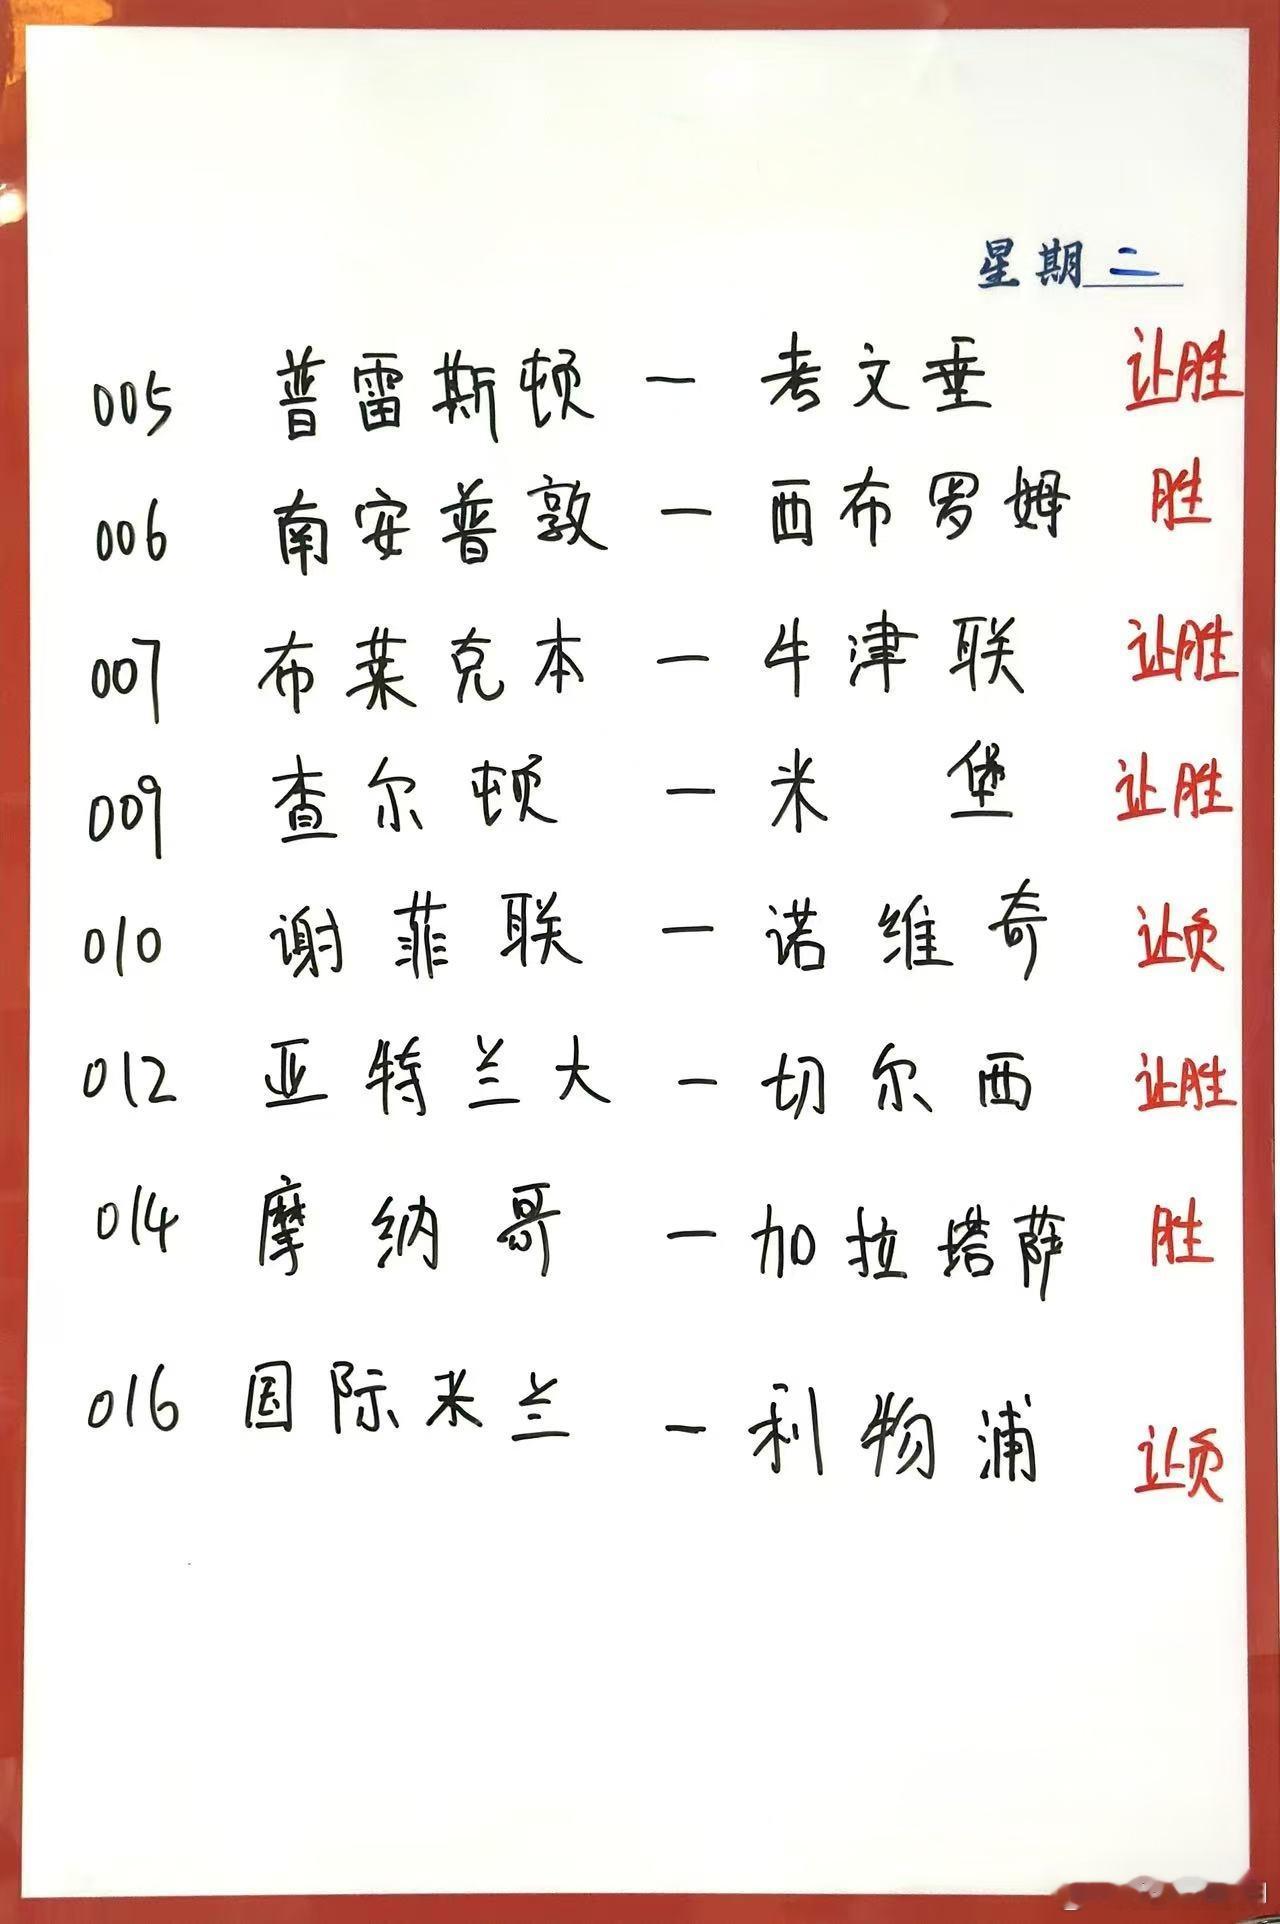 星期二
005 普雷斯顿 — 考文垂 让胜
006 南安普敦 — 西布罗姆 胜
007 布莱克本 — 牛津联 让胜
009 查尔顿 — 米堡 让胜
010 谢菲联 — 诺维奇 让负
012 亚特兰大 — 切尔西 让胜
014 摩纳哥 — 加拉塔萨 胜
016 国际米兰 — 利物浦 让负